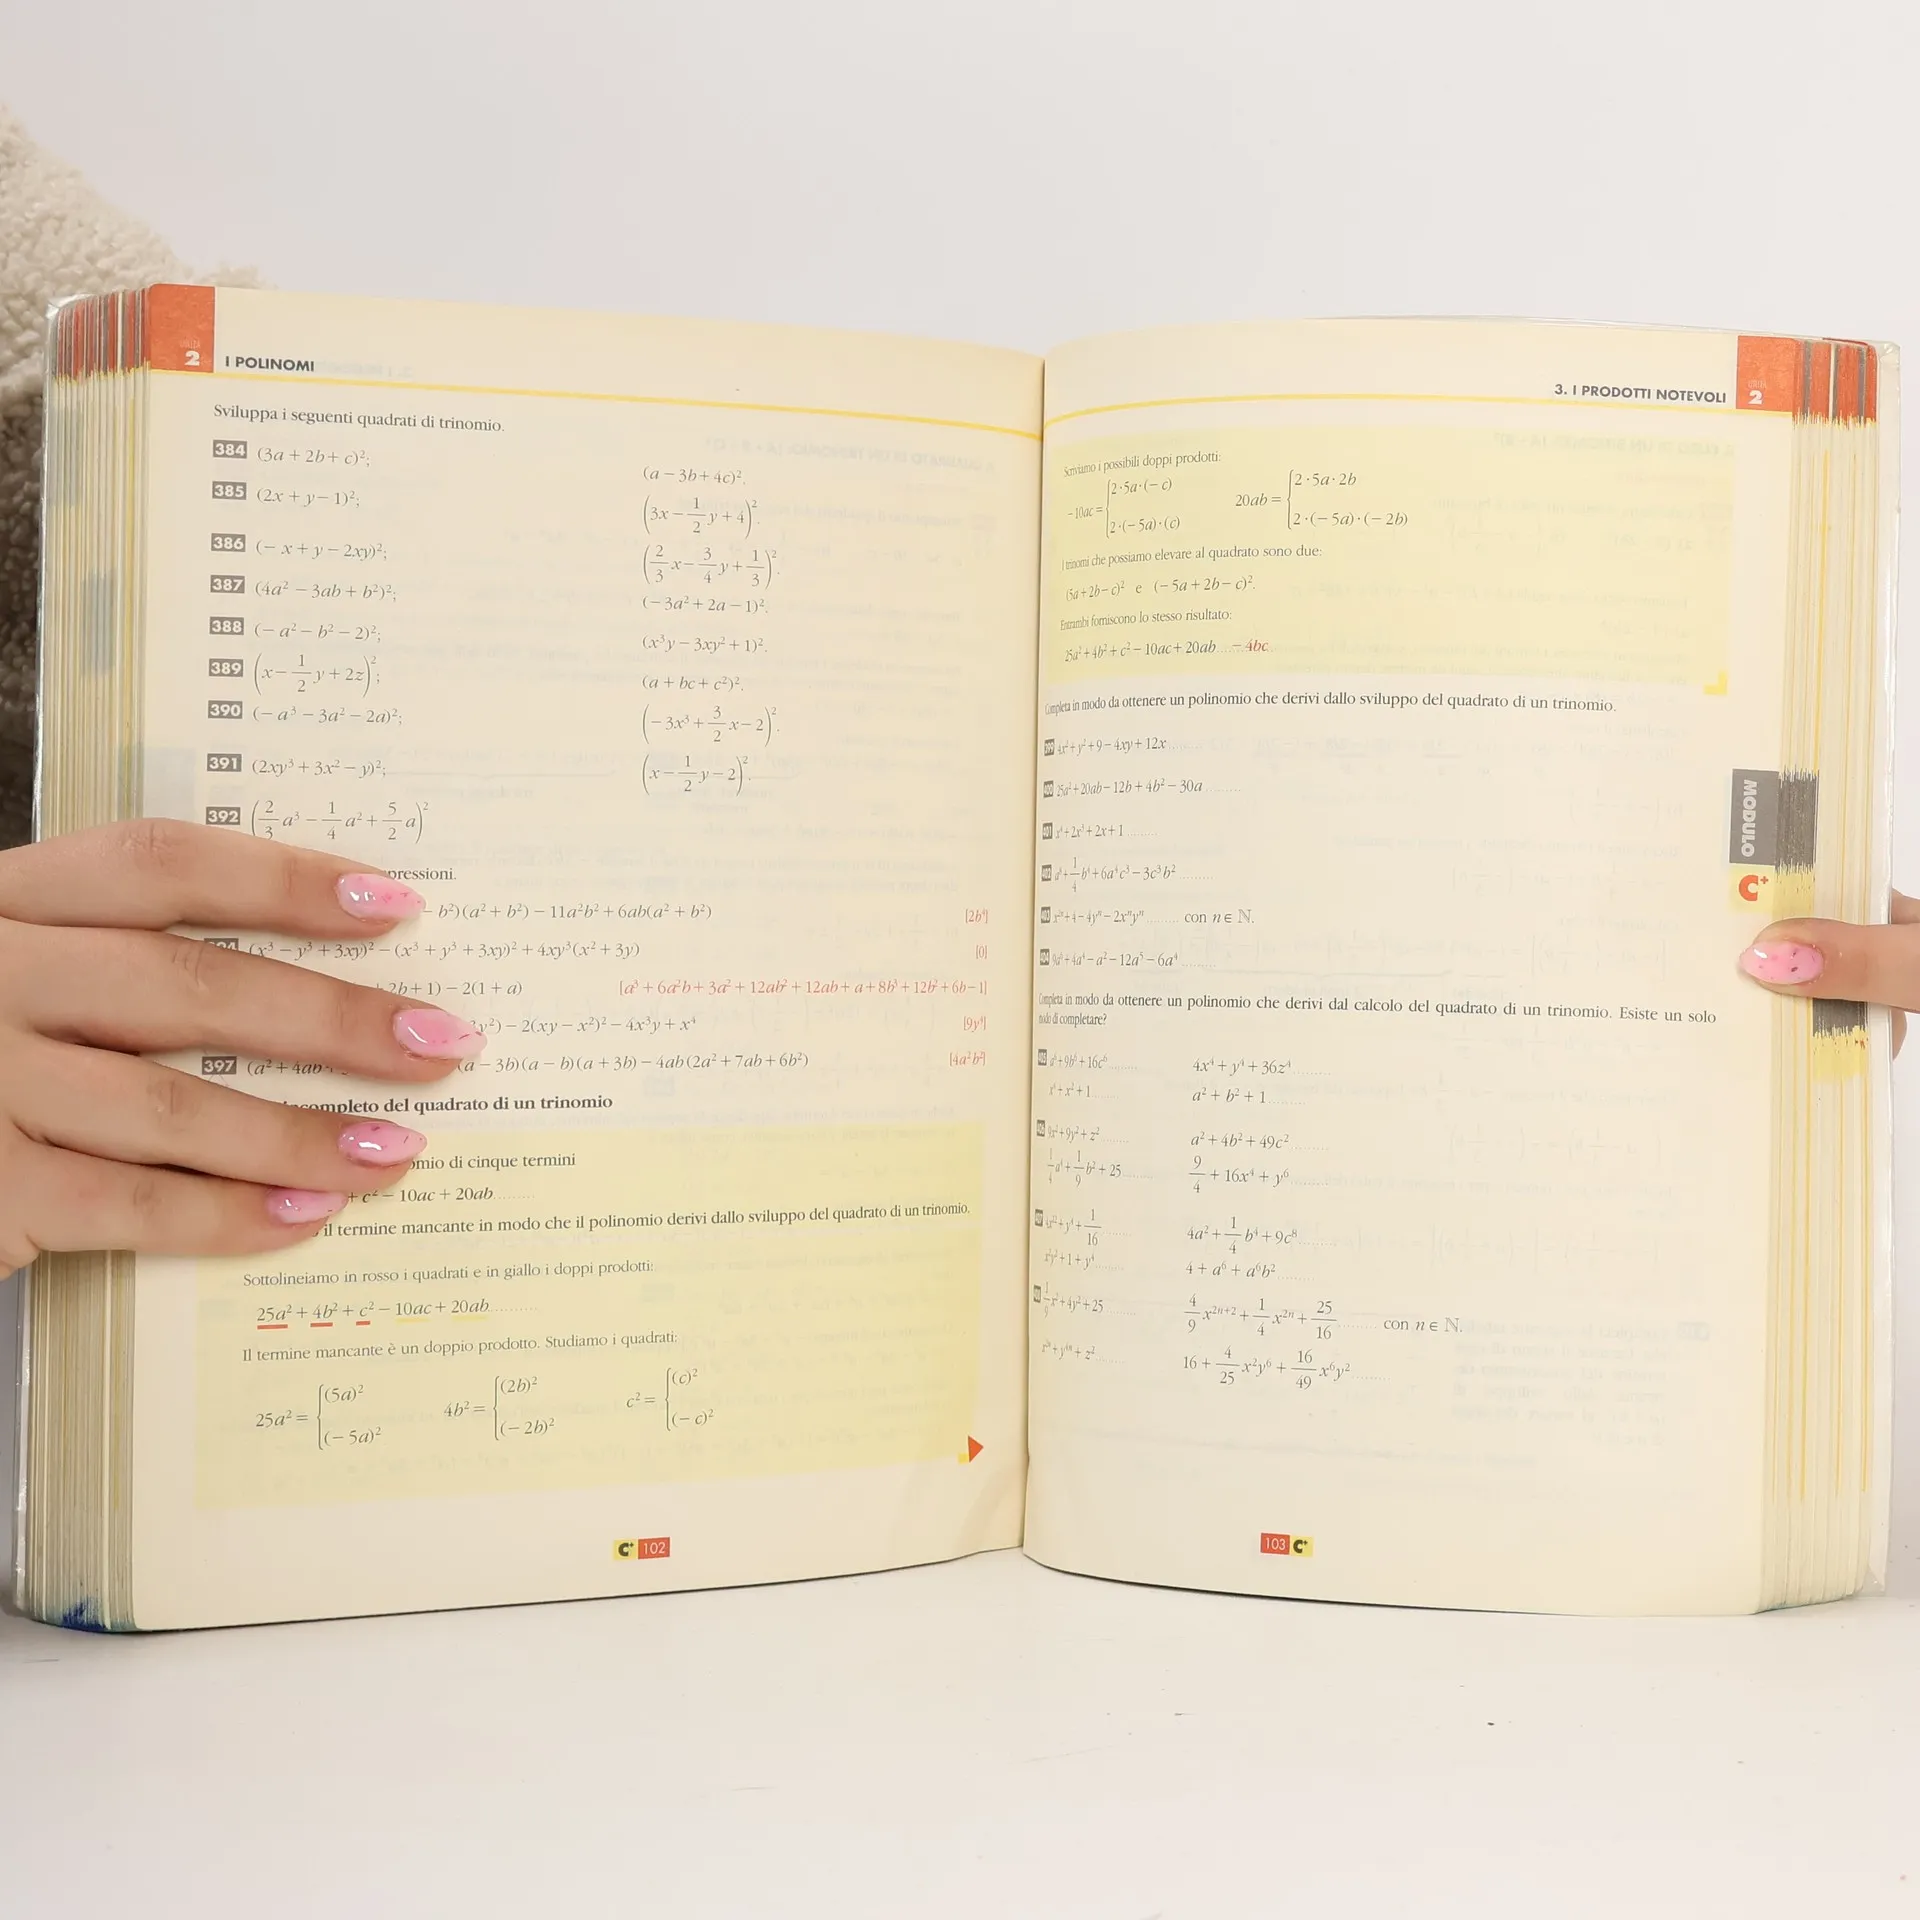 2
I POLINOMI
Sviluppa i seguenti quadrati di trinomio.
384 (3a + 2b + c)²; (a − 3b + 4c)².
385 (2x + y − 1)²; (3x − 1/2 y + 4)².
386 (− x + y − 2xy)²; (2/3 x − 3/4 y + 1/3)².
387 (4a² − 3ab + b²)²; (− 3a² + 2a − 1)².
388 (− a² − b² − 2)²; (x³y − 3xy² + 1)².
389 (x − 1/2 y + 2z)²; (a + bc + c²)².
390 (− a³ − 3a² − 2a)²; (− 3x³ + 3/2 x − 2)².
391 (2xy³ + 3x² − y)²; (x − 1/2 y − 2)².
392 (2/3 a³ − 1/4 a² + 5/2 a)²
− b²)(a² + b²) − 11a²b² + 6ab(a² + b²) [2b⁴]
(x³ − y³ + 3xy)² − (x³ + y³ + 3xy)² + 4xy³(x² + 3y) [0]
2b + 1) − 2(1 + a) [a³ + 6a²b + 3a² + 12ab² + 12ab + a + 8b³ + 12b² + 6b − 1]
y²) − 2(xy − x²)² − 4x³y + x⁴ [9y⁴]
397 (a² + 4ab (a − 3b)(a − b)(a + 3b) − 4ab(2a² + 7ab + 6b²) [4a²b²]
del quadrato di un trinomio
di cinque termini
+ c² − 10ac + 20ab..........
il termine mancante in modo che il polinomio derivi dallo sviluppo del quadrato di un trinomio.
Sottolineiamo in rosso i quadrati e in giallo i doppi prodotti:
25a² + 4b² + c² − 10ac + 20ab..........
Il termine mancante è un doppio prodotto. Studiamo i quadrati:
25a² = { (5a)² (− 5a)² 4b² = { (2b)² (− 2b)² c² = { (c)² (− c)²
C+ 102
3. I PRODOTTI NOTEVOLI
2
Scriviamo i possibili doppi prodotti:
−10ac = { 2·5a·(− c) 2·(− 5a)·(c) 20ab = { 2·5a·2b 2·(− 5a)·(− 2b)
I trinomi che possiamo elevare al quadrato sono due:
(5a + 2b − c)² e (− 5a + 2b − c)².
Entrambi forniscono lo stesso risultato:
25a² + 4b² + c² − 10ac + 20ab ... − 4bc...
Completa in modo da ottenere un polinomio che derivi dallo sviluppo del quadrato di un trinomio.
399 4x² + y² + 9 − 4xy + 12x ..........
400 25a² + 20ab − 12b + 4b² − 30a ..........
401 x⁴ + 2x³ + 2x + 1 ..........
1/4 b⁴ + 6a⁴c³ − 3c³b² ..........
403 x²ⁿ + 4 − 4yⁿ − 2xⁿyⁿ .......... con n ∈ ℕ.
+ 4a⁴ − a² − 12a⁵ − 6a⁴ ..........
Completa in modo da ottenere un polinomio che derivi dal calcolo del quadrato di un trinomio. Esiste un solo
modo di completare?
+ 9b⁶ + 16c⁶ .......... 4x⁴ + y⁴ + 36z⁴..........
x⁴ + x² + 1.......... a² + b² + 1..........
9x² + 9y² + z² .......... a² + 4b² + 49c²..........
1/4 a⁴ + 1/9 b² + 25.......... 9/4 + 16x⁴ + y⁶..........
+ y⁴ + 1/16 .......... 4a² + 1/4 b⁴ + 9c⁸..........
+ 1 + y⁴.......... 4 + a⁶ + a⁶b²..........
1/9 x² + 4y² + 25 .......... 4/9 x²ⁿ⁺² + 1/4 x²ⁿ + 25/16 .......... con n ∈ ℕ.
+ z².......... 16 + 4/25 x²y⁶ + 16/49 x⁶y²..........
MODULO
C+
103 C+